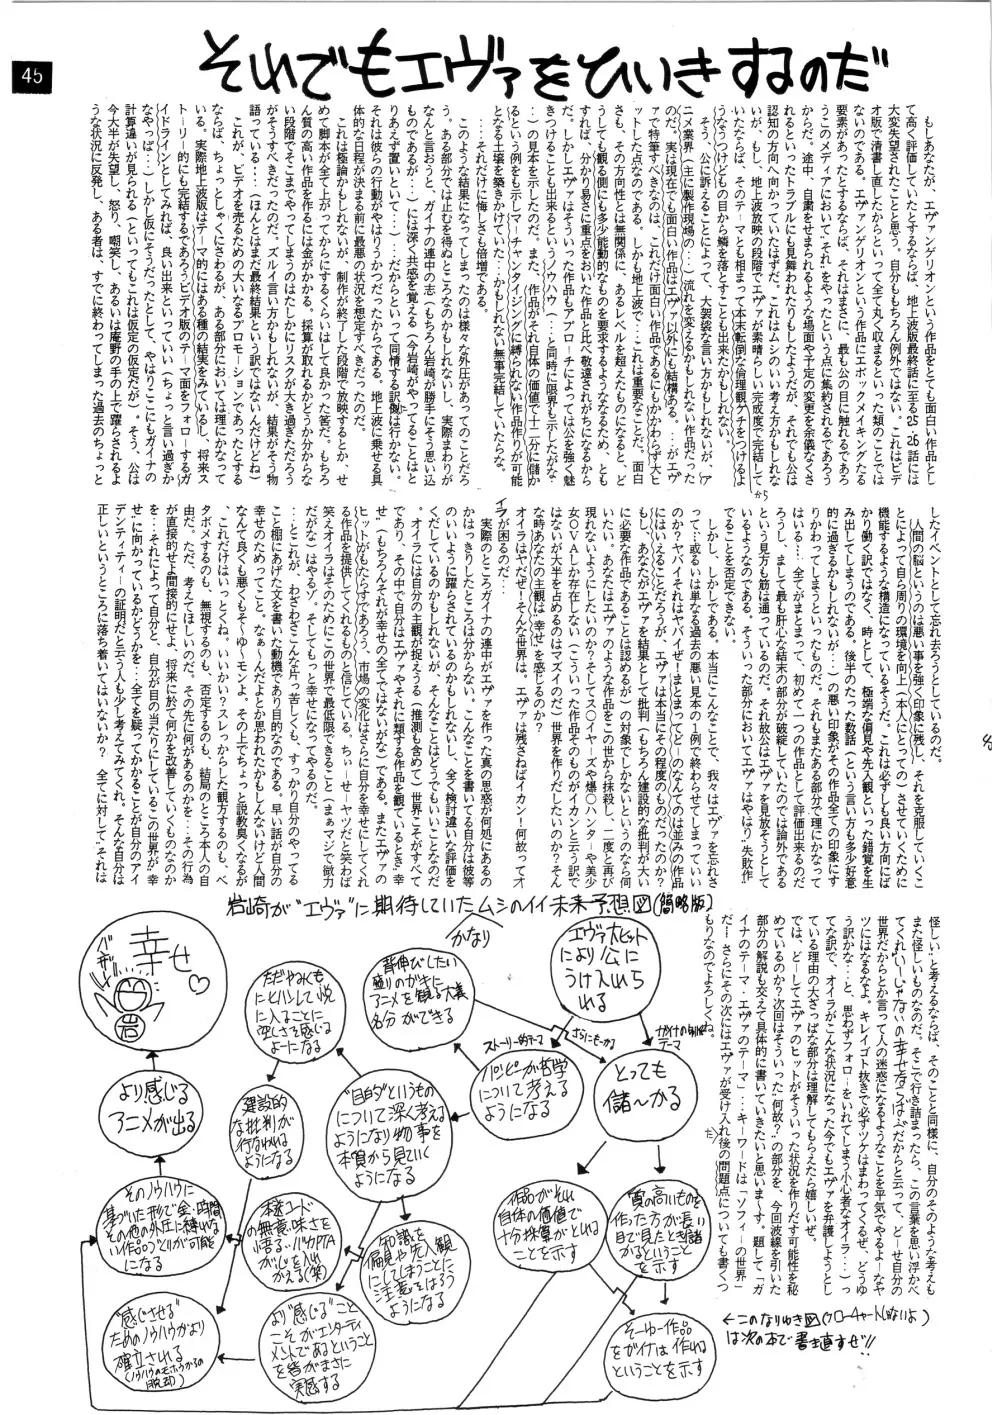 45
それでもエヴァをひいきするのだ
もしあなたが、エヴァンゲリオンという作品をとても面白い作品とし
て高く評価していたとするならば、地上波版最終話に至る25・26話には
大変失望されたことと思う。自分ももちろん例外ではない。これはビデ
オ版で清書し直したからといって全て丸く収まるといった類のことでは
ないのである。エヴァンゲリオンという作品にエポックメイキングたる
要素があったとするならば、それはまさに、最も公の目に触れるであろ
うこのメディアにおいて『それ』をやったという点に集約されるであろう
からだ。途中、自粛をせまられるような場面や予定の変更を余儀なくさ
れるといったトラブルにも見舞われたりもしたようだが、それでも公は
認知の方向へ向かっていたはずだ。これはムシのいい考え方かもしれな
いが、もし、地上波放映の段階でエヴァが素晴らしい完成度で完結して
いたならば、そのテーマとも相まって本末転倒な倫理観でケチをつけるよ
うなうつけどもの目から鱗を落とすことも出来たかもしれない。
そう、公に訴えることによって、大袈裟な言い方かもしれないが、(ア
ニメ業界(主に製作現場の…)の)流れを変えうるかもしれない作品だった
のだ。実は現在でも面白い作品はエヴァ以外にも結構ある。…がエヴ
ァで特筆すべきなのは、これだけ面白い作品であるにもかかわらず大ヒ
ットした点なのである。しかも地上波で…これは重要なことだ。面白
さも、その方向性とは無関係に、あるレベルを超えたものになると、ど
うしても観る側にも多少能動的なものを要求するようなるため、とも
すれば、分かり易さに重点をおいた作品と比べ敬遠されがちになるから
だ。しかしエヴァはそういった作品もアプローチによっては公を強く魅
きつけることも出来るというノウハウ(…と同時に限界も示したがな…
…)の見本を示したのだ。また、作品がそれ自体の価値で十二分に儲か
るという例をも示しマーチャンダイジングに縛られない作品作りが可能
となる土壌を築きかけていた…かもしれない無事完結していたらな。
…それだけに悔しさも倍増である。
このような結果になってしまったのは様々な外圧があってのことだろ
う。ある部分では止むを得ぬところなのかもしれないし、実際まわりが
なんと言おうと、ガイナの連中の志(もちろん岩崎が勝手にそう思い込
むものであるが…)には深く共感を覚える(今岩崎がやってることはと
りあえず置いといて…)…だからといって同情する訳には行かない。
それは彼らの行動がやはりうかつだったからである。地上波に乗せる具
体的な日程が決まる前に最悪の状況を想定すべきだったのだ。
これは極論かもしれないが、制作が終了した段階で放映するとか、せ
めて脚本が全て上がってからにするくらいはして良かった筈だ。もちろ
ん質の高い作品を作るには金がかかる。採算が取れるかどうか分からな
い段階でそこまでやってしまうのはたしかにリスクが大き過ぎただろう
がそうすべきだったのだ。ズルイ言い方かもしんないが、結果がそう物
語っている…(ほんとはまだ最終結果という訳ではないんだけどね)
これが、ビデオを売るための大いなるプロモーションであったとする
ならば、ちょっとしゃくにさわるが、ある部分においては理にかなって
いる。実際地上波版はテーマ的にはある種の結実をみているし、将来ス
トーリー的にも完結するであろうビデオ版のテーマ面をフォローするガ
イドラインとしてみれば、良い出来といっていい(ちょっと言い過ぎか
なやっぱ…)しかし仮にそうだったとして、やはりここにもガイナの
計算違いが見られる(といってもこれは仮定の仮定だが)。そう、公は
今大半が失望し、怒り、嘲笑し、あるいは庵野の手の上で躍らされるよ
うな状況に反発し、ある者は、すでに終わってしまった過去のちょっと
したイベントとして忘れ去ろうとしているのだ。
人間の脳というのは悪い事を強く印象に残し、それを克服していくこ
とによって自らや周りの環境を向上(本人にとっての)させていくために
機能するような構造になっているそうだ。これは必ずしも良い方向にば
かり働く訳ではなく、時として、極端な偏見や先入観といった錯覚を生
み出してしまうのである。後半のたった数話(という言い方も多少好意
的に過ぎるかもしれないが…)の悪い印象がその作品全ての印象にす
りかわってしまうといったものだ。それもまたある部分で理にかなって
はいる…全てがまとまって、初めて一つの作品として評価出来るのだ
ろうし、まして最も肝心な結末の部分が破綻していたのでは論外である
という見方も筋は通っているのだ。それ故公はエヴァを見放そうとして
いるようなのである。そういった部分においてエヴァはやはり"失敗作"
であることを否定できない。
しかし、しかしである。本当にこんなことで、我々はエヴァを忘れさ
って…或るいは単なる過去の悪い見本の1例で終わらせてしまっていい
のか?ヤバイぞそれはヤバイぜ!まとまってど〜のなんてのは並みの作品
にはいえることだろうが、エヴァは本当にその程度のものだったのか?
いたい、あなたがエヴァを結果として批判(もちろん建設的な批判が大い
に必要な作品であることは認めるが)の対象でしかないというのなら何
も言わないが、あなたはエヴァのような作品をこの世から抹殺し、二度と再び
現れないようにしたいのか?
オイラはヤだぜ!そんな世界は。エヴァは残さねばイカン!何故ってオ
イラが困るのだ…
実際のところガイナの連中がエヴァを作った真の思惑が何処にあるの
かはっきりしたところは分からない。こんなことを書いてる自分は彼等
のいいように躍らされているのかもしれないし、全く検討違いな評価を
くだしているのかもしれないが、そんなことはどうでもいいことなのだ
。オイラには自分の主観が捉えうる(推測も含めて)世界こそがすべて
であり、その中で自分はエヴァやそれに類する作品を観ているとき"幸
せ"(もちろんそれが幸せの全てではないがな)である。またエヴァの
ヒットがもたらすであろう、市場の変化はさらに自分を幸せにしてくれ
る作品を提供してくれるものと信じている。ちぃーせーヤツだと笑わば
笑えオイラはそのためにこの世界で最低限できること(まぁマジで微力
だがなこ)はやるゾ。そしてもっと幸せになってやるのだ。
…とこれが、わざわざこんな片っ苦しくも、すっかり自分のやってる
こと棚にあげた文を書いた動機であり目的なのである。早い話が自分の
幸せのためってこと。なぁーんだよとか思われたかもしんないけど人間
なんて良くも悪くもそーゆーモンよ。その上でちょっと説教臭くなるが
、これだけはいっとくね。いいかい?スレっからした観方するのも、べ
タボメするのも、無視するのも、否定するのも、結局のところ本人の自
由だ。ただ、考えてほしいのだ。その先に何があるのかを…その行為
が直接的せよ間接的にせよ、将来に於て何かを改善していくものなのか
を…それによって自分と、自分が目の当たりにしているこの世界が"幸
せ"に向かっているかどうかを…全てを疑ってかかることが自分のアイ
デンティティーの証明だと云う人も少し考えてみてくれ。そんな自分は
正しいというところに落ち着いてはいないか?全てに対して、"それは
怪しい"と考えるならば、そのことと同様に、自分のそのような考えも
また怪しいものなのだ。そこで行き詰まったら、この言葉を思い浮かべ
てくれ
世界だからとか言って人の迷惑になるようなことを平気でやるよーなヤ
ツにはなるなよ。キレイゴト抜きで必ずツケはまわってくるぜ、どうゆ
う訳かな…と、思わずフォローをいれてしまう小心者なオイラ…)っ
てな訳で、オイラがこんな状況になった今でもエヴァを弁護しようとし
ている理由の大ざっぱな部分は理解してもらえたら嬉しいぜ。
では、どーしてエヴァのヒットがそういった状況を作りだす可能性を秘
めているのか?次回はそういった"何故?"の部分を、今回波線を引いた
部分の解説も交えて具体的に書いていきたいと思いま〜す。題して「ガ
イナのテーマ・エヴァのテーマ」…キーワードは「ソフィーの世界」
だ!…さらにその次にはエヴァが受け入れ後の問題点についても書くつ
もりなのでよろしくね。
岩崎が"エヴァ"に期待していたムシのイイ未来予想図(簡略版)
かなり
エヴァ大ヒット
により公に
うけ入れら
れる
背伸びしたい
盛りのガキに
アニメを観る大義
名分ができる
ただやみくも
にとんがして悦
に入ることに
空しさを感じる
よーになる
幸せ♡
岩
ストーリー的テーマ
さらにもーかる
テーマ
とっても
儲〜かる
パンピーが哲学
について考える
ようになる
"目的"というもの
について深く考える
ようになり物事を
本質から見ていく
ようになる
建設的
な批判が
行なわれる
ようになる
より感じる
アニメが出る
そのノウハウに
基づいた形で金・時間
その他の外圧に縛れな
い作品づくりが可能
になる
知識を
偏見や先入観
にしてしまうことに
注意をはらう
ようになる
作品がそれ
自体の価値で
十分採算がとれる
ことを示す
質の高いものを
作った方が長い
目で見たとき儲
かるということ
を示す
"感じさせる"
ためのノウハウがより
確立される
より"感じる"こと
こそがエンターティ
メントであるということ
を皆がまさに
実感する
そーゆー作品
をガイナは作れる
ということを示す
←このなりゆき図
は次の本で書き直すぜ!!